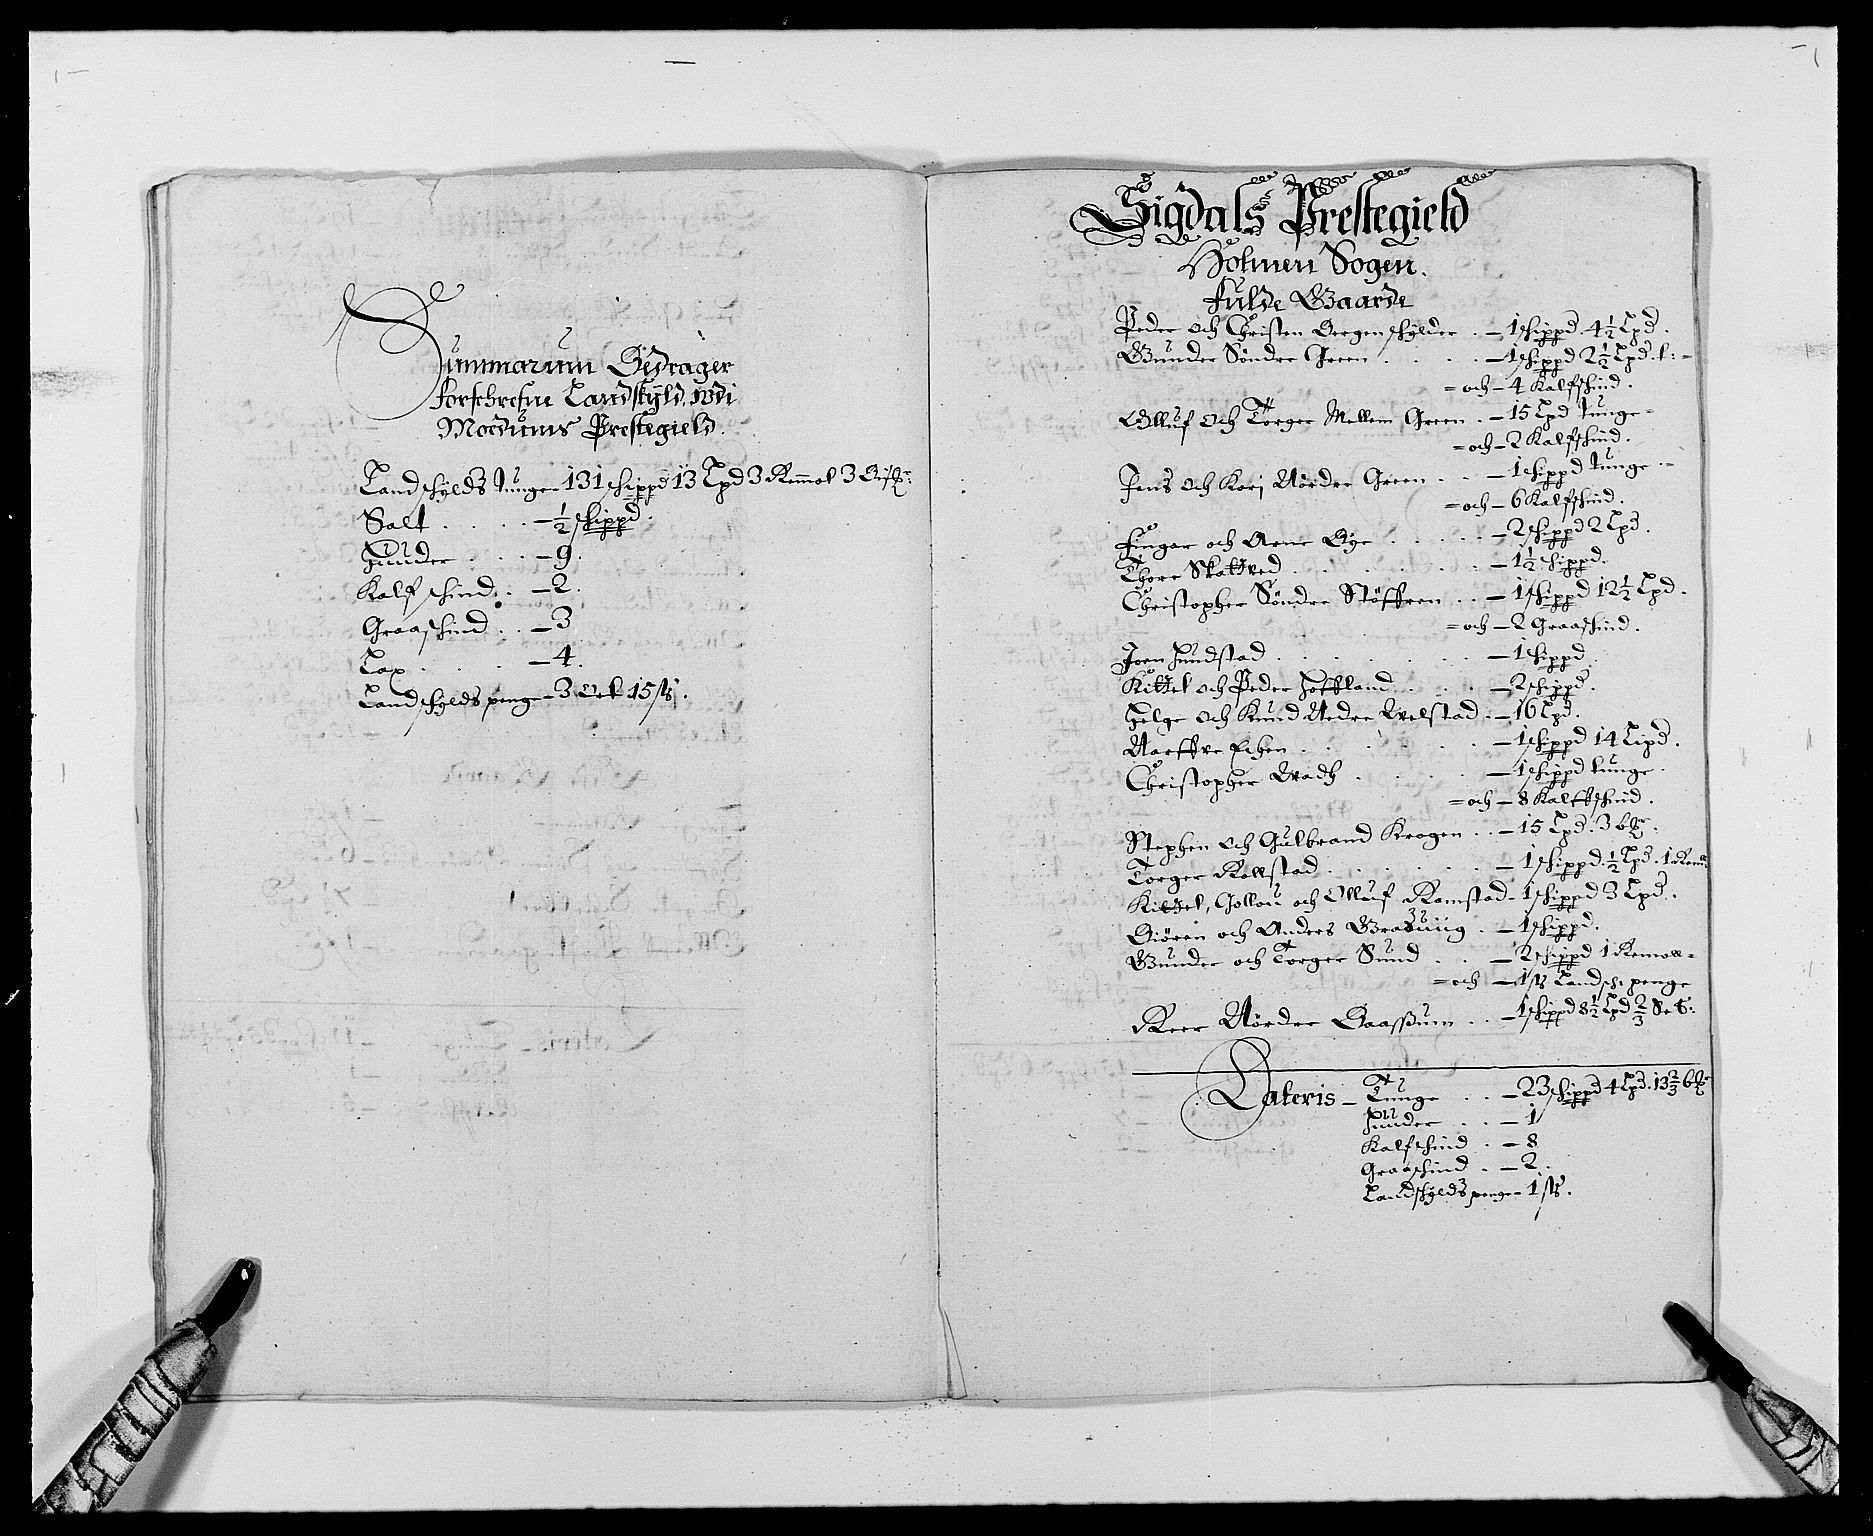 Summarum Bedrager
forschrefne Landskyld, udi
Modums Prestegield.
Landschylds Tunge 131 schippd 13 Lpd 3 Remol 3
Salt . . . . . — ½ schippd.
Huder . . . — 9.
Kalfschind . . — 2.
Graaschind . . — 3
Lax . . . . . — 4.
Landschylds penge — 3 Ort 15 ß.
Sigdals Prestegield
Holmen Sogen.
Fulde Gaarde
Peder och Christen Bergenschylder . — 1 schippd 4½ Lpd.
Gunder Søndre Green . . . . . — 1 schippd 2½ Lpd. t: =
= och — 4 Kalfschind.
Olluf och Torger Mellem Green . — 15 Lpd Tunge =
= och — 2 Kalfschind.
Jens och Kari Nørdre Green . . — 1 schippd Tunge . =
= och — 6 Kalfschind.
Fingar och Arne Øye . . . . . — 2 schippd 2 Lpd.
Thore Skattved . . . . . . . — 1½ schippd.
Christopher Søndre Støffren . . — 1 schippd 12½ Lpd.
= och — 2 Graaschind.
Joen Hundstad . . . . . . . — 1 schippd
Kittel och Peder Hoffland . . . . — 2 schippd.
Helge och Knud Nedre Welstad . — 16 Lpd.
Narffve Echen . . . . . . . — 1 schippd 14 Lipd.
Christopher Wadh . . . . . — 1 schippd tunge .
= och — 8 Kalffschind.
Stephen och Gulbrand Kragen . . — 15 Lpd. 3 b
Torger Kollstad . . . . . . — 1 schippd. ½ Lpd. 1 Remol
Kittel, Gollou och Olluf Ramstad — 1 schippd 3 Lpd.
Giøren och Anders . — 1 schippd.
Gunder och Torger Sund . . — 2 schippd 1 Remoll =
= och — 1 ß Landsch penge
Peer Nørdre Gaassum . . — 1 schippd 8½ Lpd ⅔ Set:
Lateris — Tunge . . — 23 schippd 4 Lpd. 13⅔ b
Huder . . — 1
Kalfschind . — 8
Graaschind . — 2.
Landschylds penge — 1 ß.